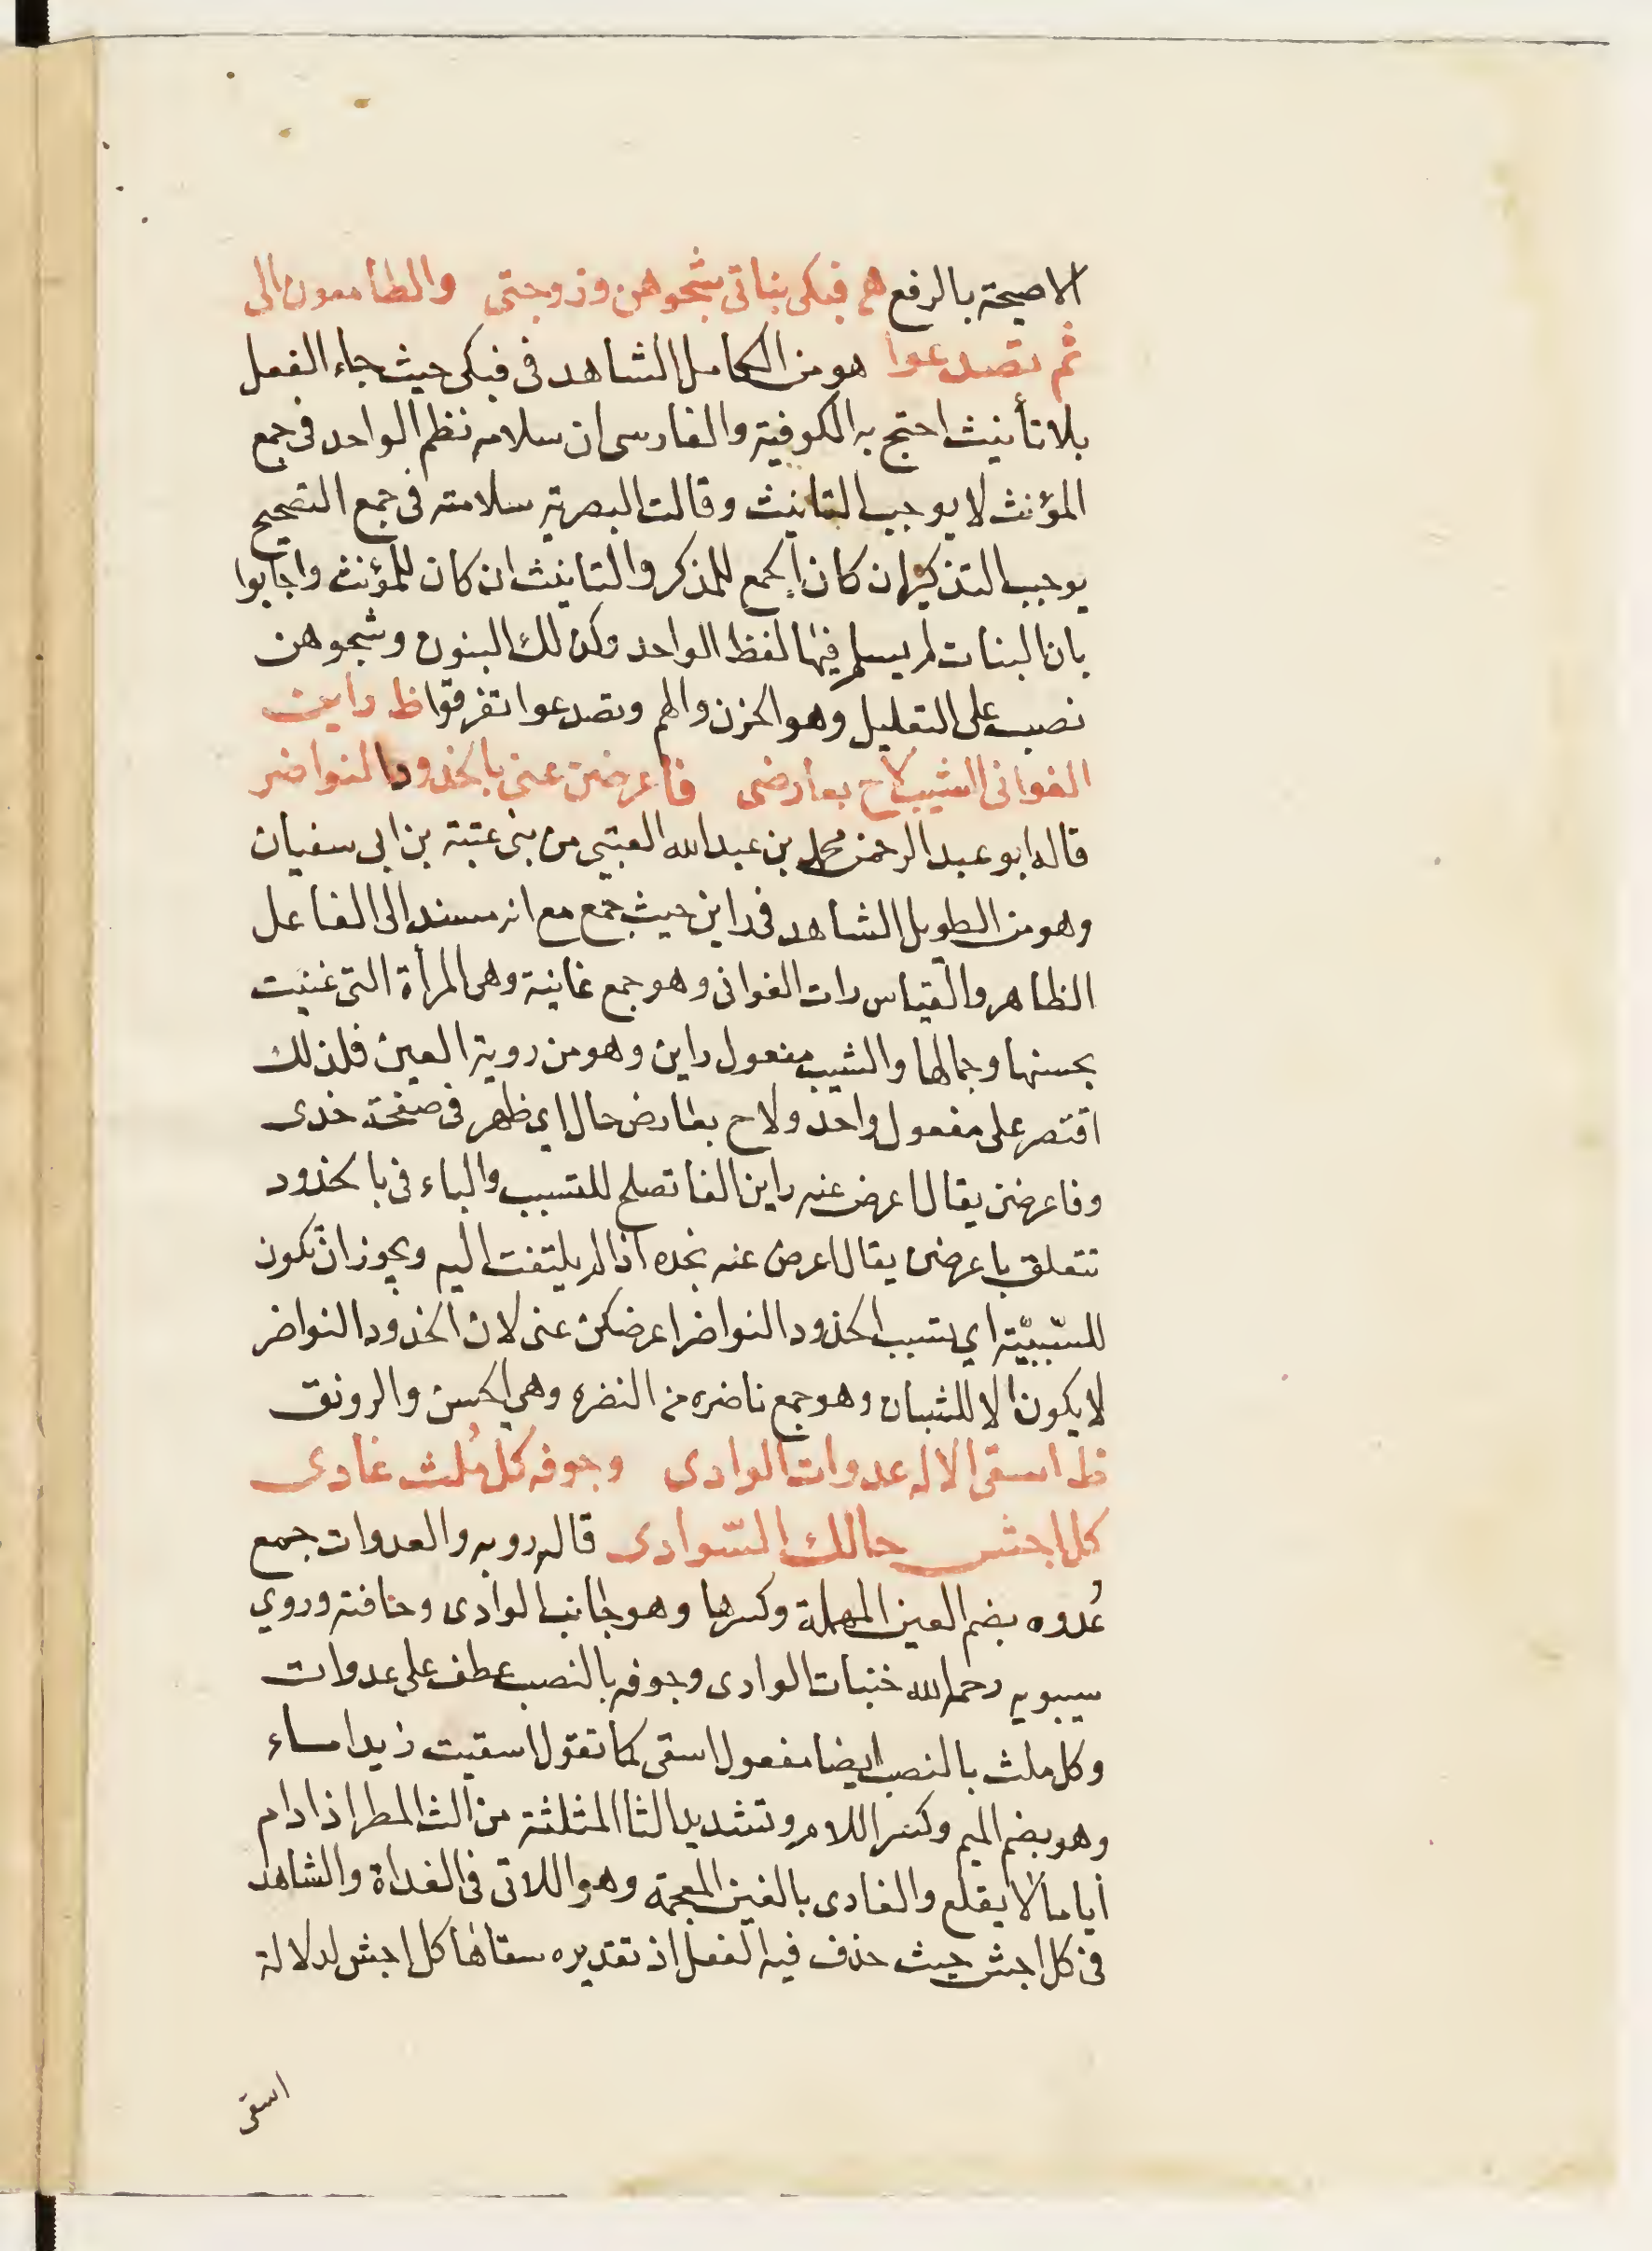 الاصيحة بالرفع هع فبكى بناتى شجوهن وزوجتى والطامعون الى
ثم تصدعوا هو من الكامل الشاهد فى فبكى حيث جاء الفعل
بلا تأنيث احتج به الكوفية والفارسى ان سلامه نظم الواحد فى جمع
المؤنث لا يوجب التانيث وقالت البصرية سلامته فى جمع التصحيح
يوجب التذكير ان كان الجمع للمذكر والتانيث ان كان للمؤنث واجابوا
بان البنات لم يسلم فيها لفظ الواحد وكذلك البنون وشجوهن
نصب على التعليل وهو الحزن والهم وتصدعوا تفرقوا ظ راين
الغوانى الشيب لاح بعارضى فاعرضن عنى بالخدود النواضر
قاله ابو عبد الرحمن محمد بن عبد الله العتبي من بنى عتبة بن ابى سفيان
وهو من الطويل الشاهد فى راين حيث جمع مع انه مسند الى الفاعل
الظاهر والقياس رات الغوانى وهو جمع غانية وهى المرأة التى غنيت
بحسنها وجمالها والشيب مفعول راين وهو من روية العين فلذلك
اقتصر على مفعول واحد ولاح بعارض حال اي ظهر فى صفحة خدى
وفاعرضن يقال اعرض عنه راين الفا تصلح للتسبب والباء فى بالخدود
تتعلق باعرضن يقال اعرض عنه بخده اذا لم يلتفت اليه ويجوز ان تكون
للسّببيّة اي بسبب الخدود النواضر اعرضكن عنى لان الخدود النواضر
لا يكون الا للشبان وهو جمع ناضره من النضره وهي الحسن والرونق
ظ اسقى الاله عدوات الوادى وجوفه كل مُلث غادى
كل اجش حالك السّوادى قاله روبه والعدوات جمع
عُدوه بضم العين المهملة وكسرها وهو جانب الوادى وحافته وروي
سيبويه رحمه الله خنبات الوادى وجوفه بالنصب عطف على عدوات
وكل ملث بالنصب ايضا مفعول اسقى كما تقول اسقيت زيدا ماء
وهو بضم الميم وكسر اللام وتشديد الثا المثلثة من الث المطر اذا دام
أياما لا يقلع والغادى بالغين المعجمة وهو اللاتى فى الغداة والشاهد
فى كل اجش حيث حذف فيه الفعل اذ تقديره سقاها كل اجش لدلالة
اسقى